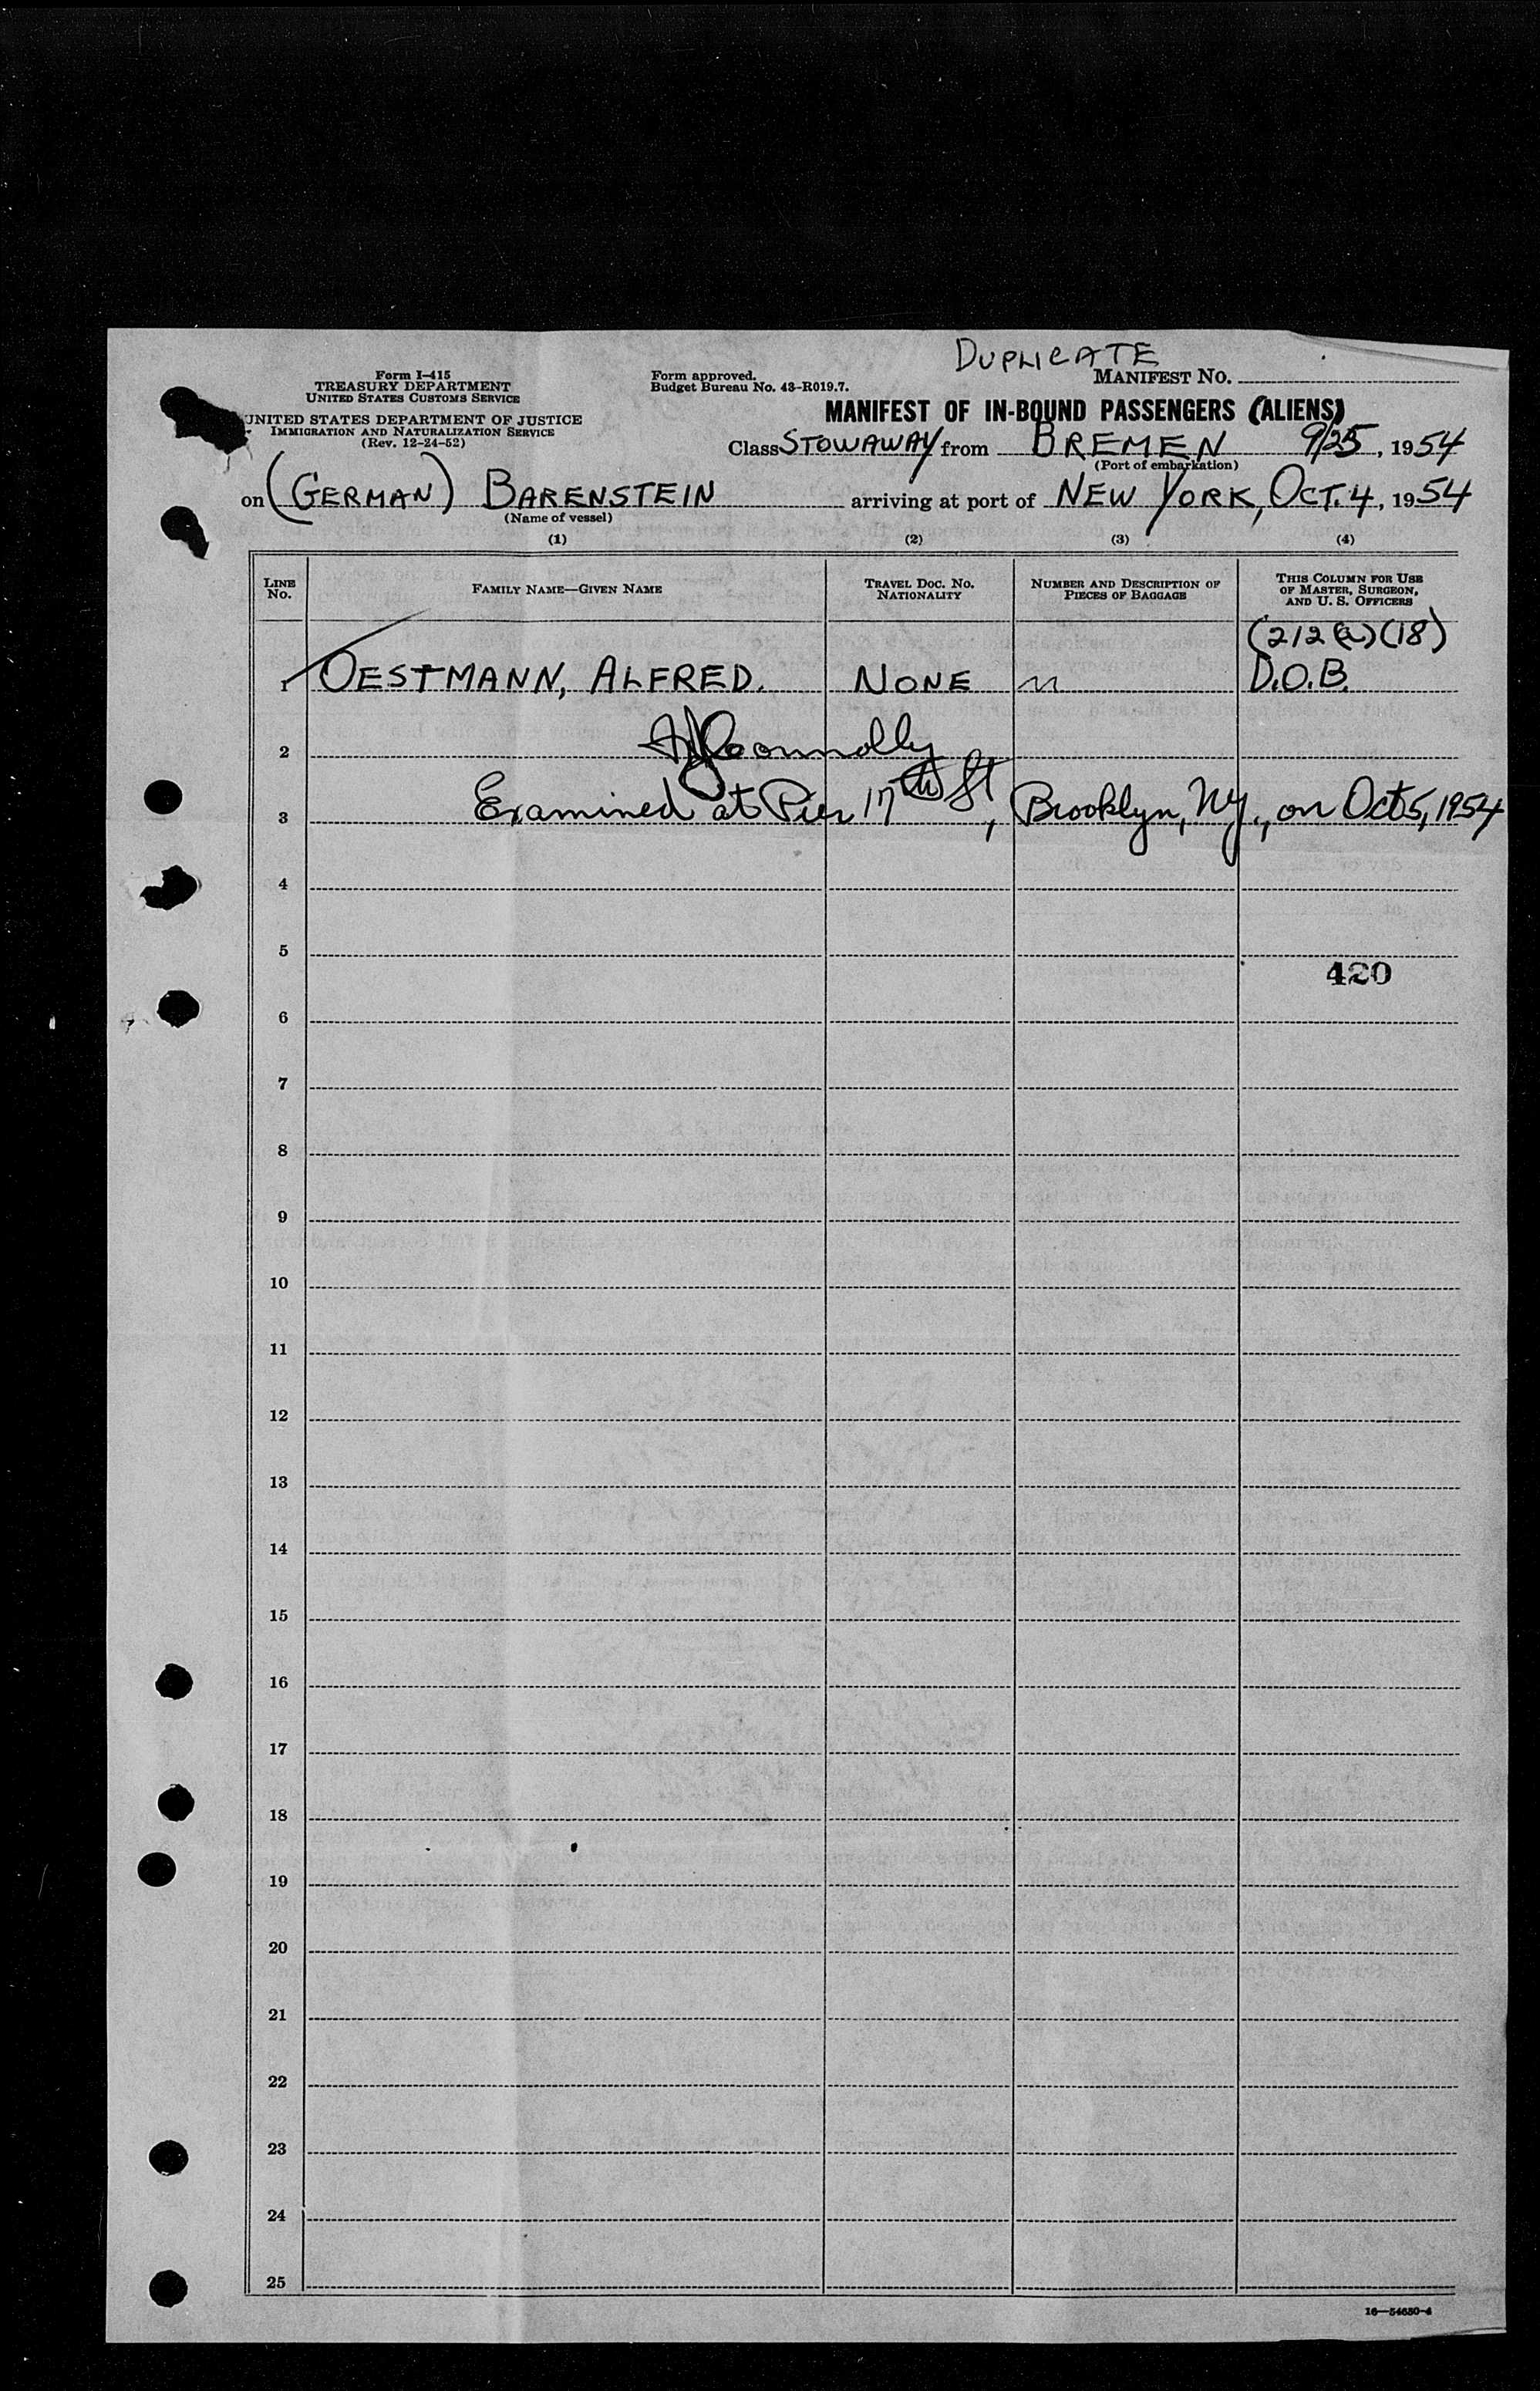 DUPLICATE
Form I-415
TREASURY DEPARTMENT
UNITED STATES CUSTOMS SERVICE
UNITED STATES DEPARTMENT OF JUSTICE
IMMIGRATION AND NATURALIZATION SERVICE
(Rev. 12-24-52)
Form approved.
Budget Bureau No. 43-R019.7.
MANIFEST NO.
MANIFEST OF IN-BOUND PASSENGERS (ALIENS)
Class STOWAWAY from BREMEN 9/25, 1954
(Port of embarkation)
on (GERMAN) BARENSTEIN arriving at port of NEW YORK, OCT. 4, 1954
(Name of vessel)
(1) (2) (3) (4)
LINE NO. FAMILY NAME—GIVEN NAME TRAVEL DOC. NO. NATIONALITY NUMBER AND DESCRIPTION OF PIECES OF BAGGAGE THIS COLUMN FOR USE OF MASTER, SURGEON, AND U. S. OFFICERS
(212(a)(18)
1 OESTMANN, ALFRED. NONE D.O.B.
2 Connolly
3 Examined at Pier 17th St, Brooklyn, NY., on Oct 5, 1954
4
5
420
6
7
8
9
10
11
12
13
14
15
16
17
18
19
20
21
22
23
24
25
16—54650-4